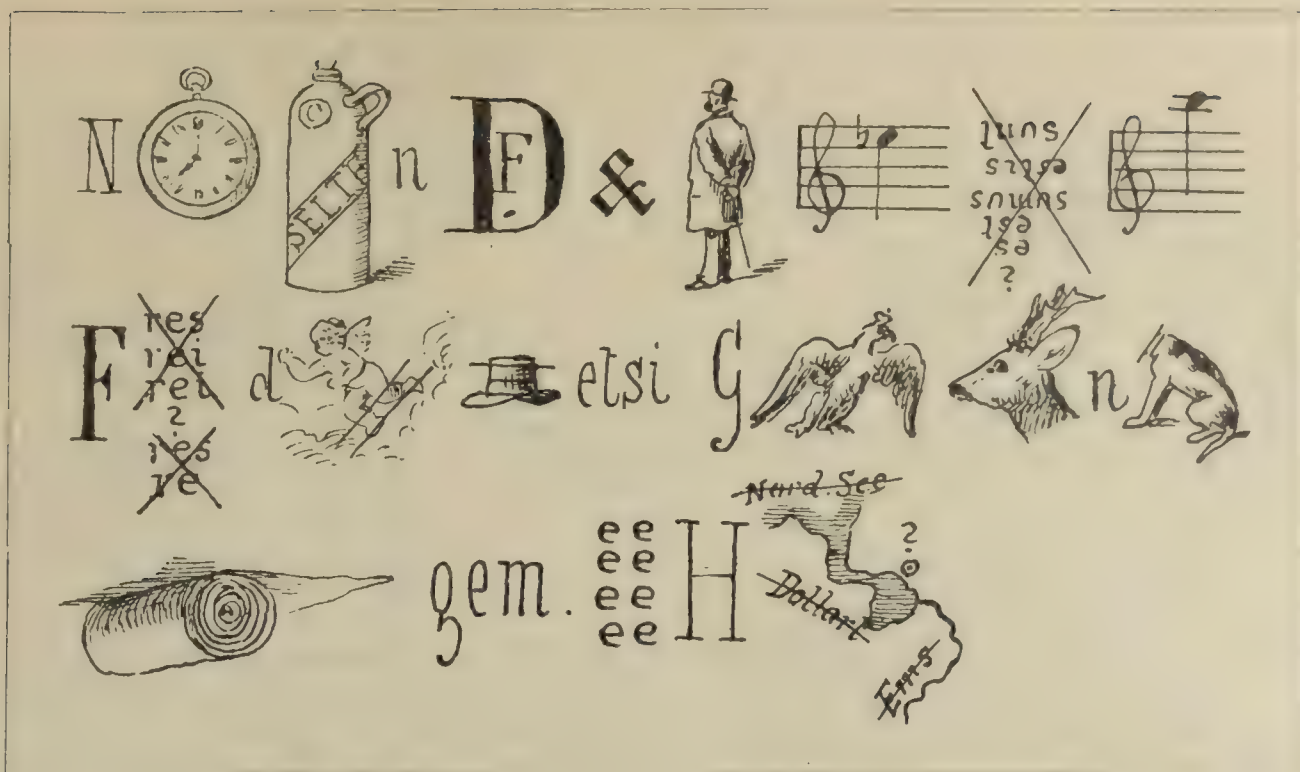 N SELT n D F. &
?
es
est
sumus
estis
sunt
F
res
rei
rei
?
res
re
d etsi G n
gem.
ee
ee
ee
ee
H
Nord. See
?
Dollart
Ems